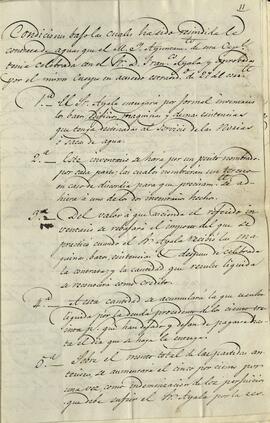 11
Condiciones bajo las cuales ha sido rescindida la
contrata de aguas que el M. Y. Ayuntam.to de esta
tenia celebrada con el Sr. d. Fran.co Ayala y aprobadas
por el mismo Cuerpo en acuerdo estraord. de 27 del
1.a El Sr. Ayala entregará por formal inventario
los baros, máquina y demas ecsistencias
que tenia destinadas al servicio de las
y saca de agua.
2.a Este inventario se hará por un perito nombrado
por cada parte, las cuales nombrarán un tercero
en caso de discordia para que precisam.te se ad-
hiera á uno de los dos inventarios hechos.
3.a Del valor á que ascienda el referido in-
ventario se rebajará el importe del que se
practicó cuando el Sr. Ayala recibió la ma-
quina, baros, ecsistencias &. despues de celebrada
la contrata; y la cantidad que resulte líquida
se reconocerá como crédito.
4.a A esta cantidad se acumulará la que resulte
líquida por la deuda procedente de los ciento trein-
ta p.s que han dejado y dejan de pagarse hasta
el dia que se haga la entrega.
5.a Sobre el monto total de las partidas an-
teriores, se aumentará el cinco por ciento por
una vez, como indemnizacion de los perjuicios
que debe sufrir el Sr. Ayala por la res-